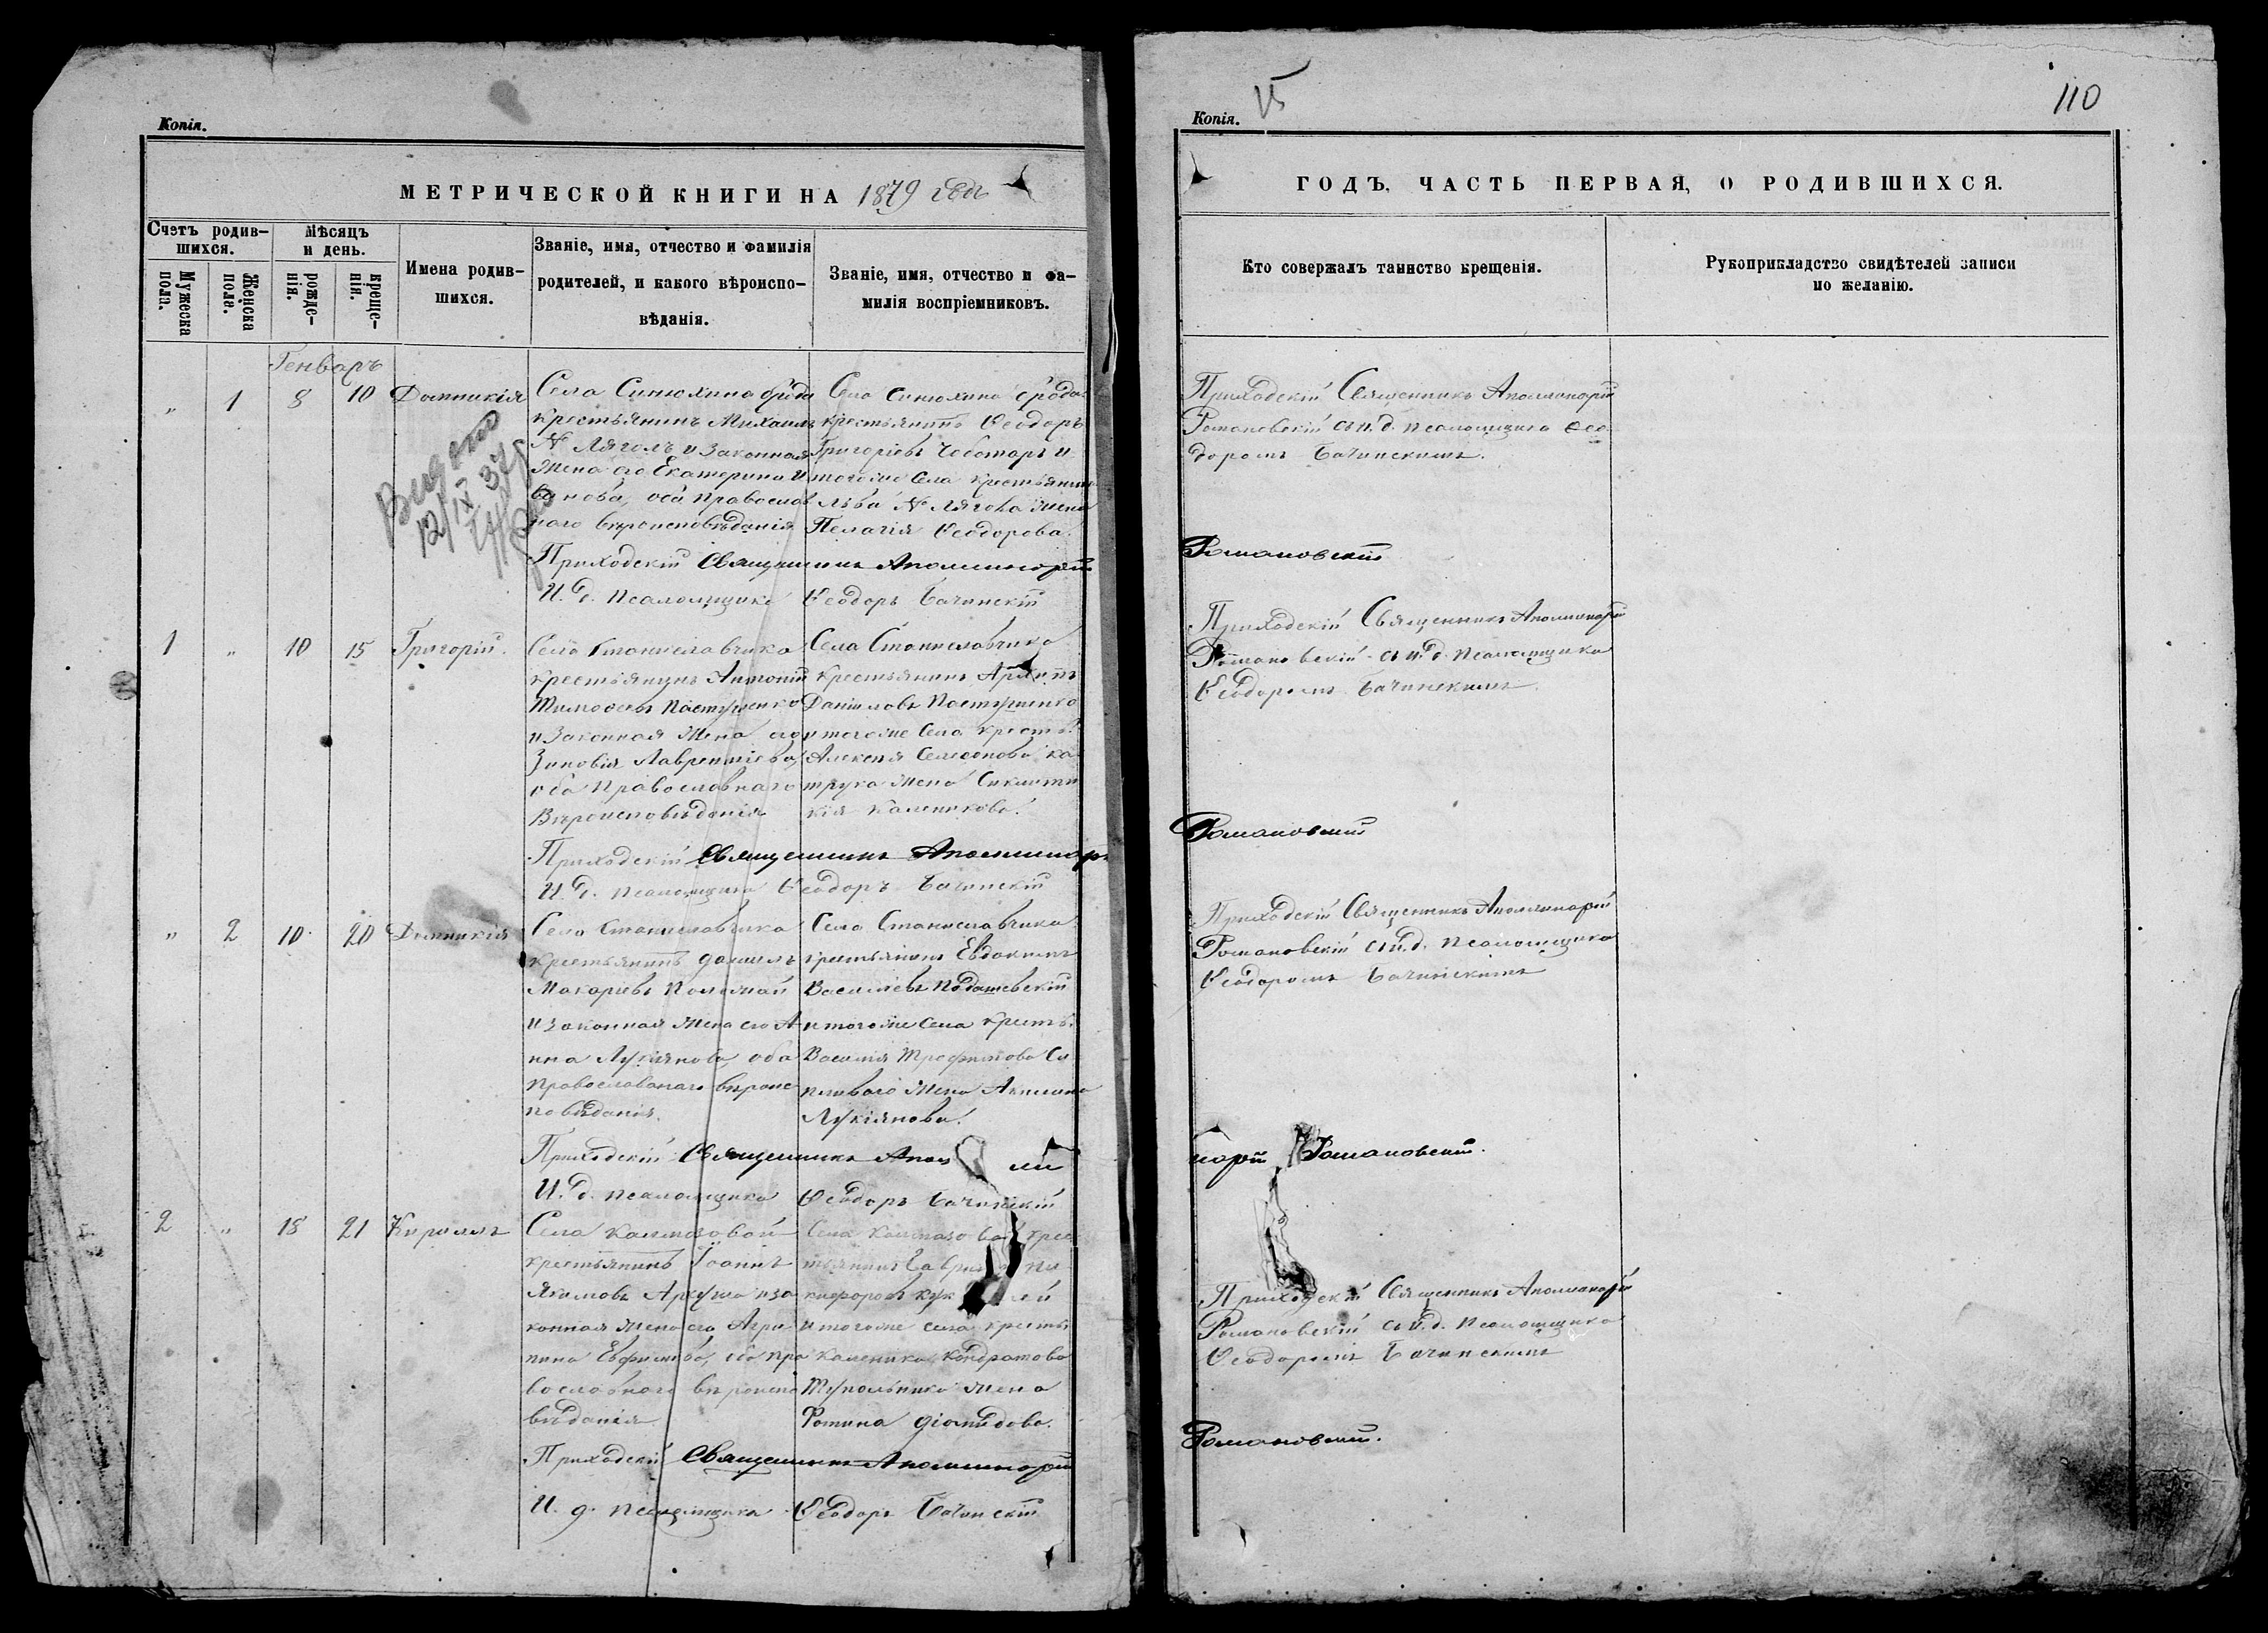 Копія.
МЕТРИЧЕСКОЙ КНИГИ НА 1879 годъ
Счетъ родив-
шихся.
Мужеска
пола.
Женска
пола.
Мѣсяцъ
и день.
рожде-
нія.
креще-
нія.
Имена родив-
шихся.
Званіе, имя, отчество и фамилія
родителей, и какого вѣроиспо-
вѣданія.
Званіе, имя, отчество и фа-
милія воспріемниковъ.
Генварь
" 1 8 10 Домникія
Видано
12/IX 37
Села Синюхина брода
крестьянинъ Михаилъ
Ляголъ и законная
жена его Екатерина И
ванова, оба православ
наго вѣроисповѣданія
Села Синюхина брода
крестьянинъ Ѳеодоръ
Григоріевъ Чеботарь и
тогоже села крестьянина
Львa Лягола жена
Пелагія Ѳеодорова.
Приходскій Священникъ Аполлинарій
И. д. псаломщика Ѳеодоръ Бачинскій
1 " 10 15 Григорій.
Села Станиславчика
крестьянинъ Антоній
Тимоѳеевъ Пастушенко
и законная жена его
Зиновія Лаврентіева,
оба православнаго
вѣроисповѣданія
Села Станиславчика
крестьянинъ Архипъ
Даніиловъ Пастушенко
и тогоже села крестья.
Алексѣя Семеонова Ка
трука жена Синклити
кія Каленикова.
Приходскій Священникъ Аполлинар
И. д. псаломщика Ѳеодоръ Бачинскій
" 2 10. 20 Домникія
Села Станиславчика
крестьянинъ Даніилъ
Макаріевъ
и законная жена его А
нна Лукіянова, оба
православнаго вѣроис
повѣданія.
Села Станиславчика
крестьянинъ Евдокимъ
Василіевъ Подашевскій
и тогоже села крестья.
Василія Трофимова Си
пливаго жена Акилина
Лукіянова.
Приходскій Священникъ Апол ли
И. д. псаломщика Ѳеодоръ Бачинскій
2 " 18 21 Кириллъ
Села Калмазовой
крестьянинъ Іоаннъ
Якимовъ Аркуша и за
конная жена его Агри
пина Евфимова, оба пра
вославнаго вѣроиспо
вѣданія.
Села Калмазовой крес
тьянинъ Гаврі Ни
кифоровъ Кук лей
и тогоже села крестья
Каленика Кондратова
жена
Фотина Діомидова.
Приходскій Священникъ Аполлинарій
И. д. псаломщика Ѳеодоръ Бачинскій
Копія.
15
110
ГОДЪ, ЧАСТЬ ПЕРВАЯ, О РОДИВШИХСЯ.
Кто совержалъ таинство крещенія.
Рукоприкладство свидѣтелей записи
по желанію.
Приходскій Священникъ Аполлинарій
Романовскій съ и. д. псаломщика Ѳео
доромъ Бачинскимъ.
Романовскій
Приходскій Священникъ Аполлинарій
Романовскій съ и. д. псаломщика
Ѳеодоромъ Бачинскимъ.
Романовскій
Приходскій Священникъ Аполлинарій
Романовскій съ и. д. псаломщика
Ѳеодоромъ Бачинскимъ
нарій Романовскій.
Приходскій Священникъ Аполлинарій
Романовскій съ и. д. псаломщика
Ѳеодоромъ Бачинскимъ
Романовскій.